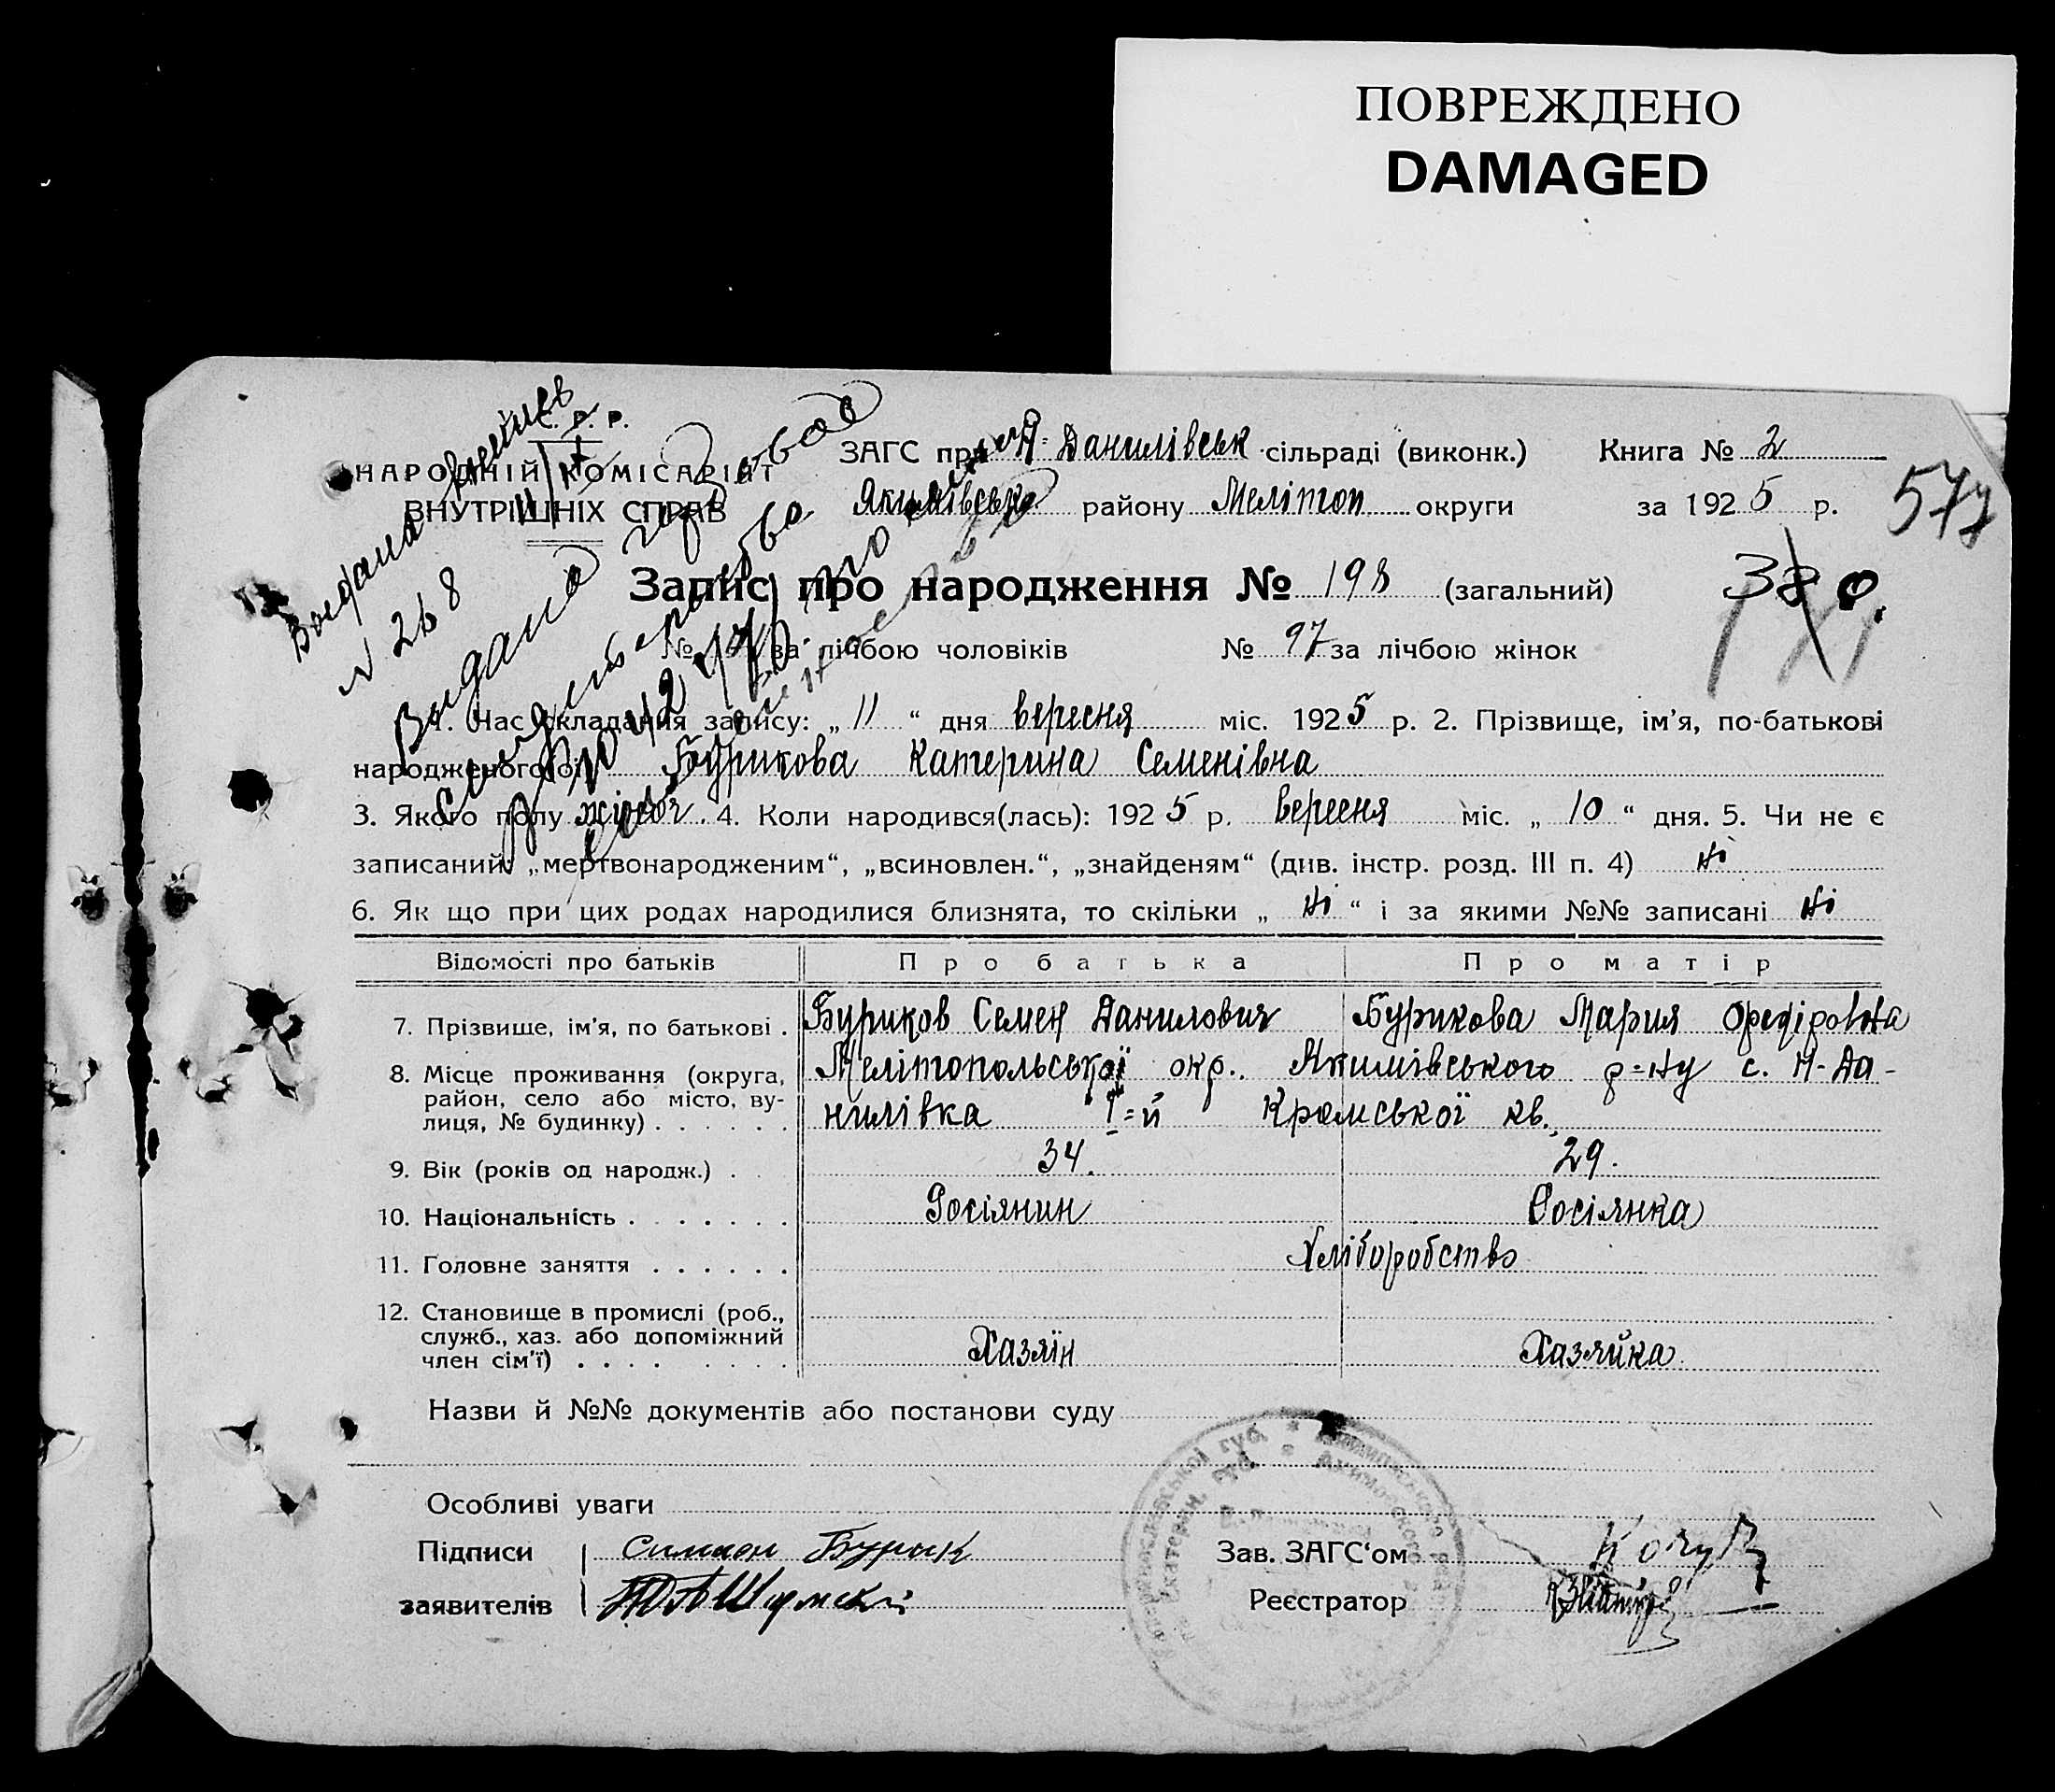 ПОВРЕЖДЕНО
DAMAGED
С. Р. Р.
НАРОДНІЙ КОМІСАРІЯТ
ВНУТРІШНІХ СПРАВ
ЗАГС при Н-Данилівськ сільраді (виконк.) Книга № 2
Якимівсько району Мелітоп округи за 1925 р.
577
Запис про народження № 198 (загальний)
380.
№ за лічбою чоловіків № 97 за лічбою жінок
№ 268
Видано
1. Час складання запису: „ 11 “ дня вересня міс. 1925 р. 2. Прізвище, ім’я, по-батькові
народженого(ої) Бурикова Катерина Семенівна
3. Якого полу жіноч. 4. Коли народився(лась): 1925 р. вересня міс. „ 10 “ дня. 5. Чи не є
записаний: „мертвонародженим“, „всиновлен.“, „знайденям“ (див. інстр. розд. III п. 4) ні
6. Як що при цих родах народилися близнята, то скільки „ ні “ і за якими №№ записані ні
Відомості про батьків Про батька Про матір
7. Прізвише, ім’я, по батькові . Буриков Семен Данилович Бурикова Мария Федіровна
8. Місце проживання (округа, район, село або місто, вулиця, № будинку) . . . . . . Мелітопольської окр. Якимівського р=ну с. Н-Да-
нилівка I=й Кромської кв.
9. Вік (років од народж.) . 34. 29.
10. Національність . . . . . . . Росіянин Росіянка
11. Головне заняття . . . . . . Хліборобство
12. Становище в промислі (роб., служб., хаз. або допоміжний член сім’ї) . . . . Хазяїн Хазяйка
Назви й №№ документів або постанови суду
Особливі уваги
Підписи Симион Бурик Зав. ЗАГС‘ом
заявителів Реєстратор